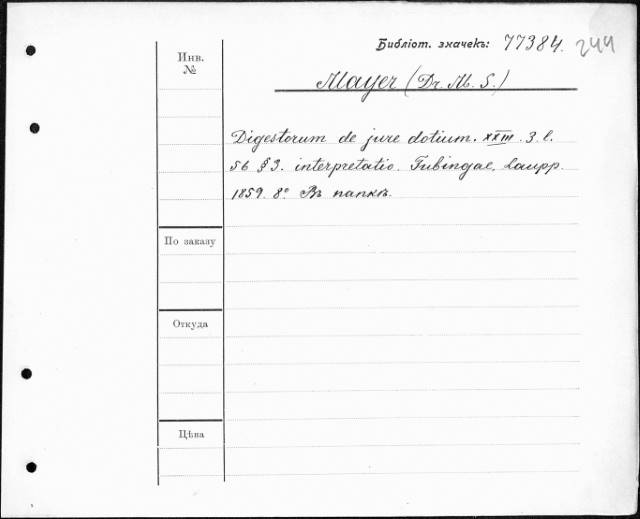 Библіот. значекъ: 77384. 244
Инв.
№
Mayer (Dr. M. S.)
Digestorum de jure dotium. XXIII. 3. l.
56 § 3. interpretatio. Tubingae, Laupp.
1859. 8° Въ папкѣ.
По заказу
Откуда
Цѣна